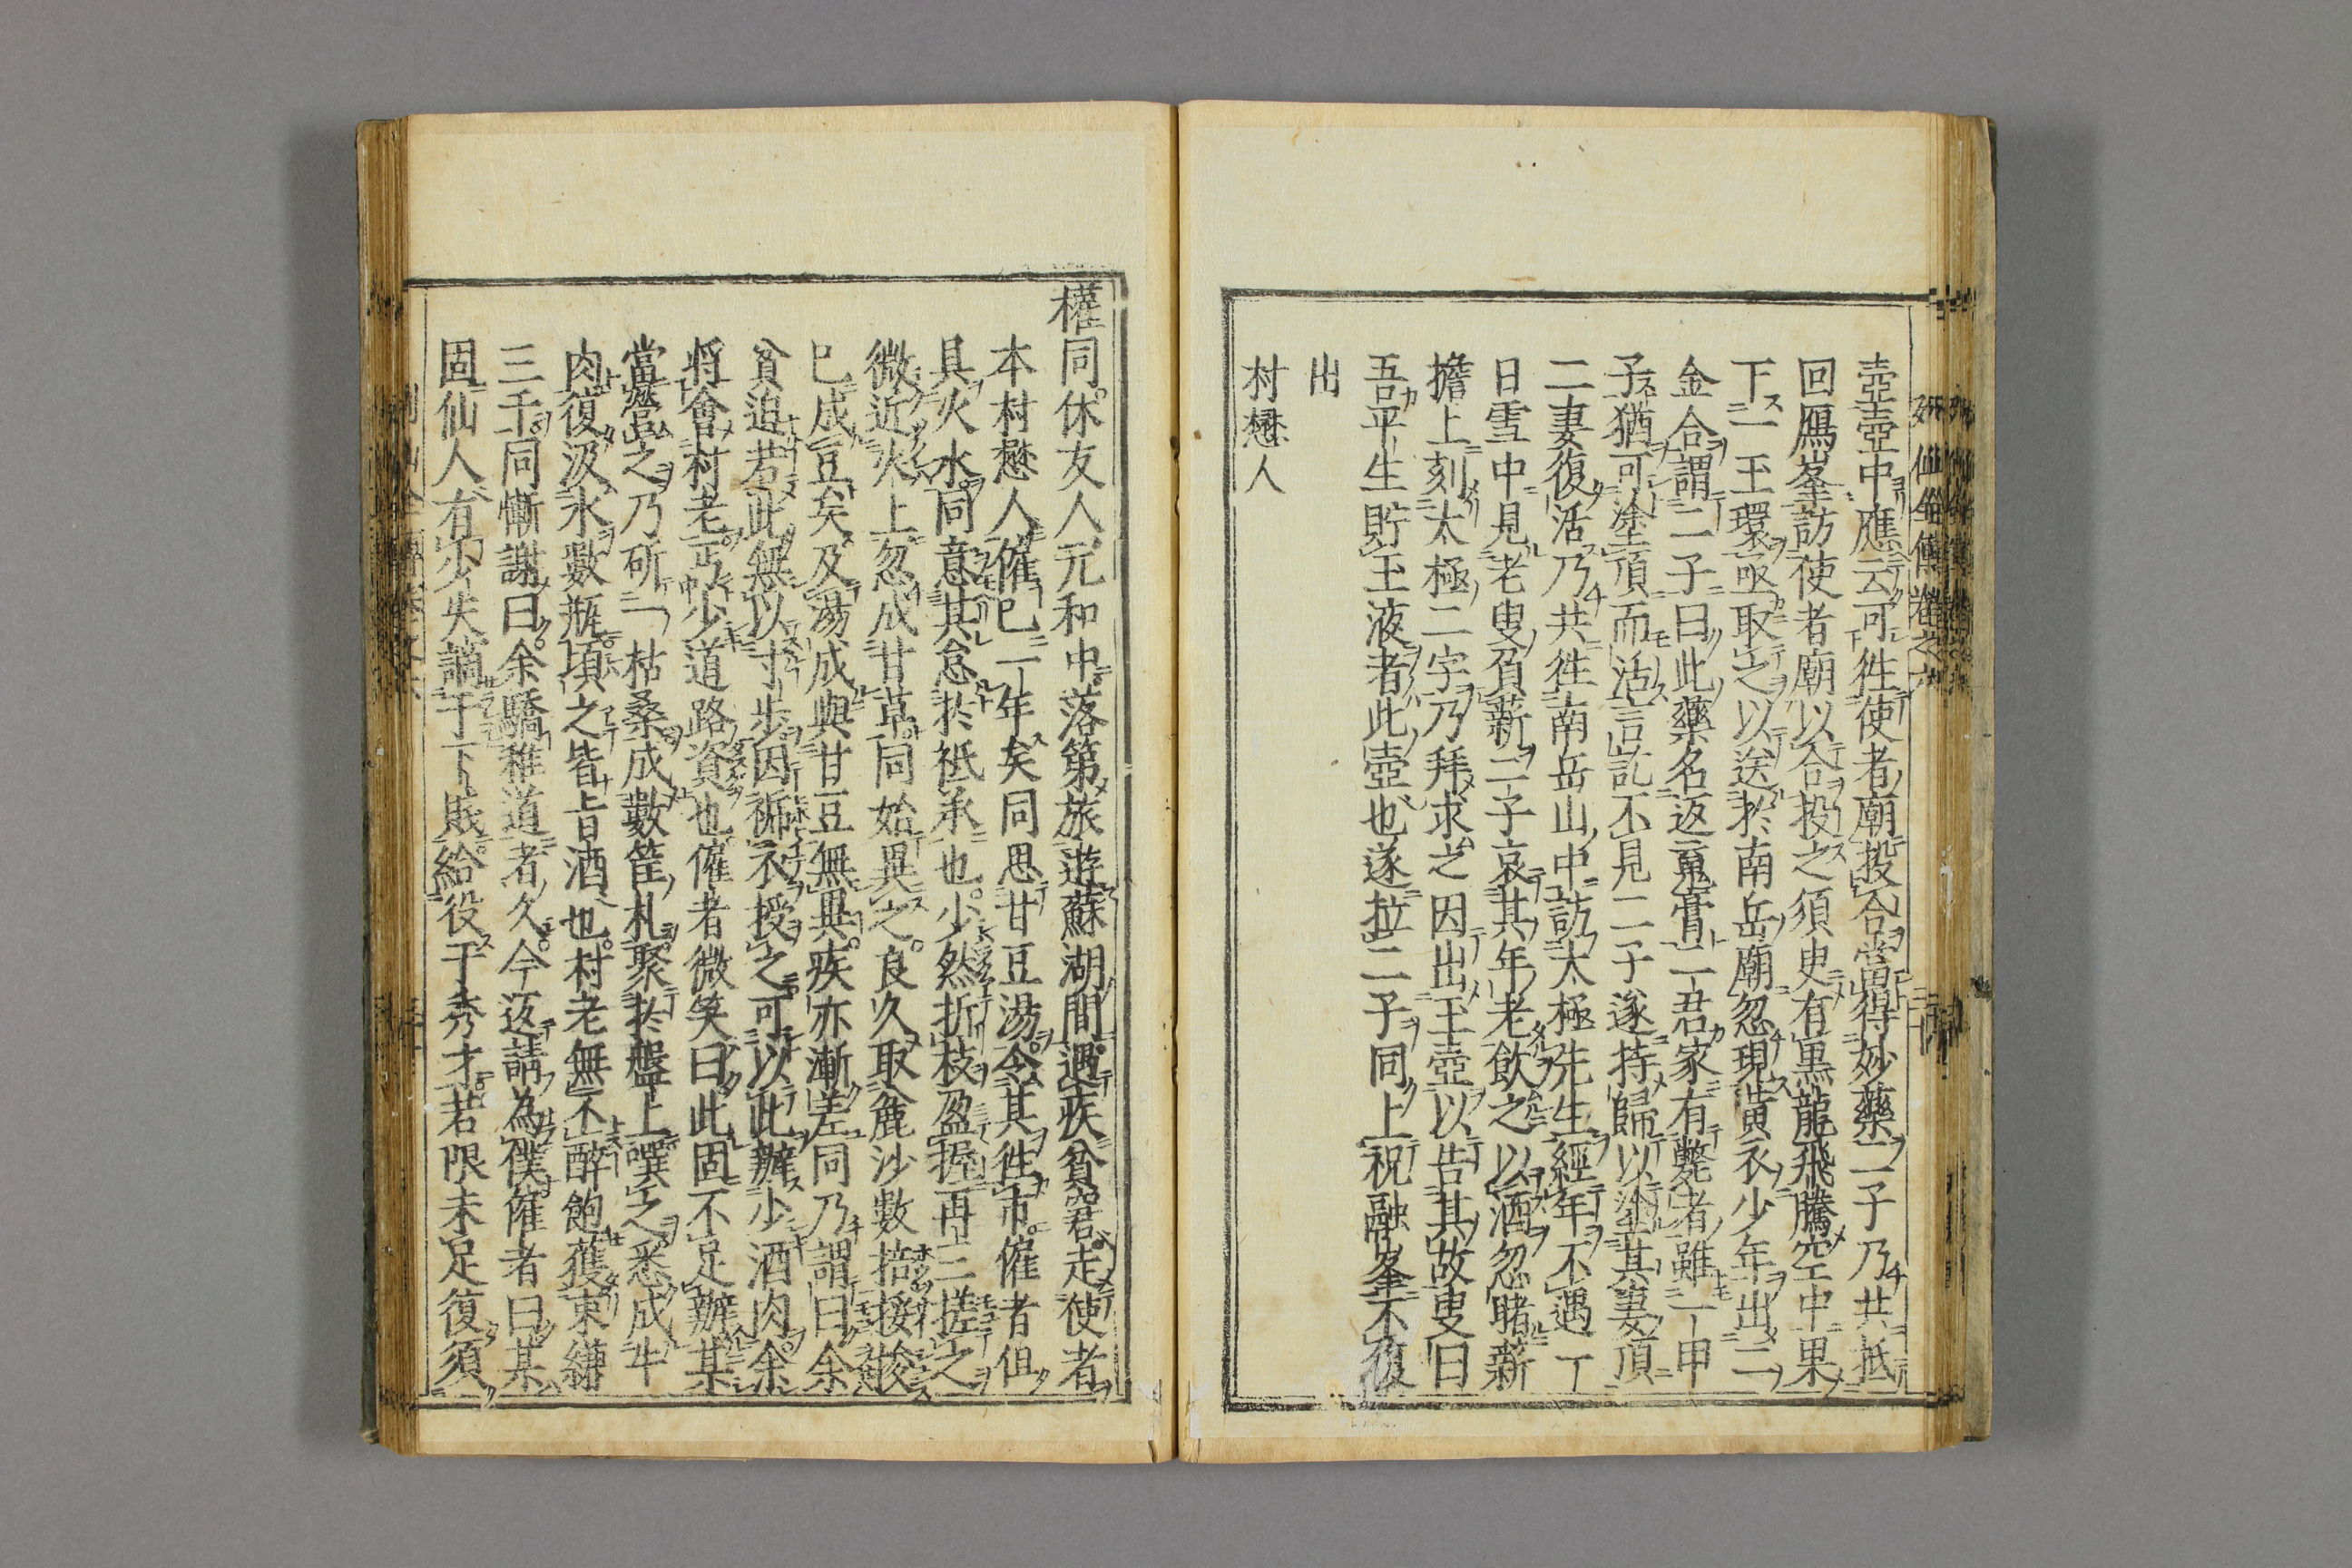 列仙全傳卷之六
壺壺中應云可往使者廟投合當得妙藥二子乃共抵
回鴈峯訪使者廟以合投之須臾有黒龍飛騰空中果
下一玉環亟取之以送於南岳廟忽現黄衣少年出二
金合謂二子曰此藥名返䰟膏二君家有斃者雖一甲
子猶可塗頂而活言訖不見二子遂持歸以塗其妻頂
二妻復活乃共徃南岳山中訪太極先生經年不遇一
日雪中見老叟負薪二子哀其年老飲之以酒忽睹薪
擔上刻太極二字乃拜求之因出玉壺以告其故叟曰
吾平生貯玉液者此壺也遂拉二子同上祝融峯不復
出
村懋人
權同休友人元和中落第旅遊蘇湖間遇疾貧窘走使者
本村懋人傭已一年矣同思甘豆湯令其徃市傭者但
具火水同意其怠於祗承也少然折枝盈握再三搓之
微近火上忽成甘草同始異之良久取麁沙數掊挼捘
已成豆矣及湯成與甘豆無異疾亦漸差同乃謂曰余
貧迫若此無以寸步因褫衣授之可以此辦少酒肉余
將會村老丐少道路資也傭者微笑曰此固不足辦某
當營之乃斫一枯桑成數筐札聚於盤上噀之悉成牛
肉復汲水數瓶頃之皆旨酒也村老無不醉飽獲束縑
三千同慚謝曰余驕稚道者久今返請為僕傭者曰某
固仙人有少失謫于下賎給役于秀才若限未足復須